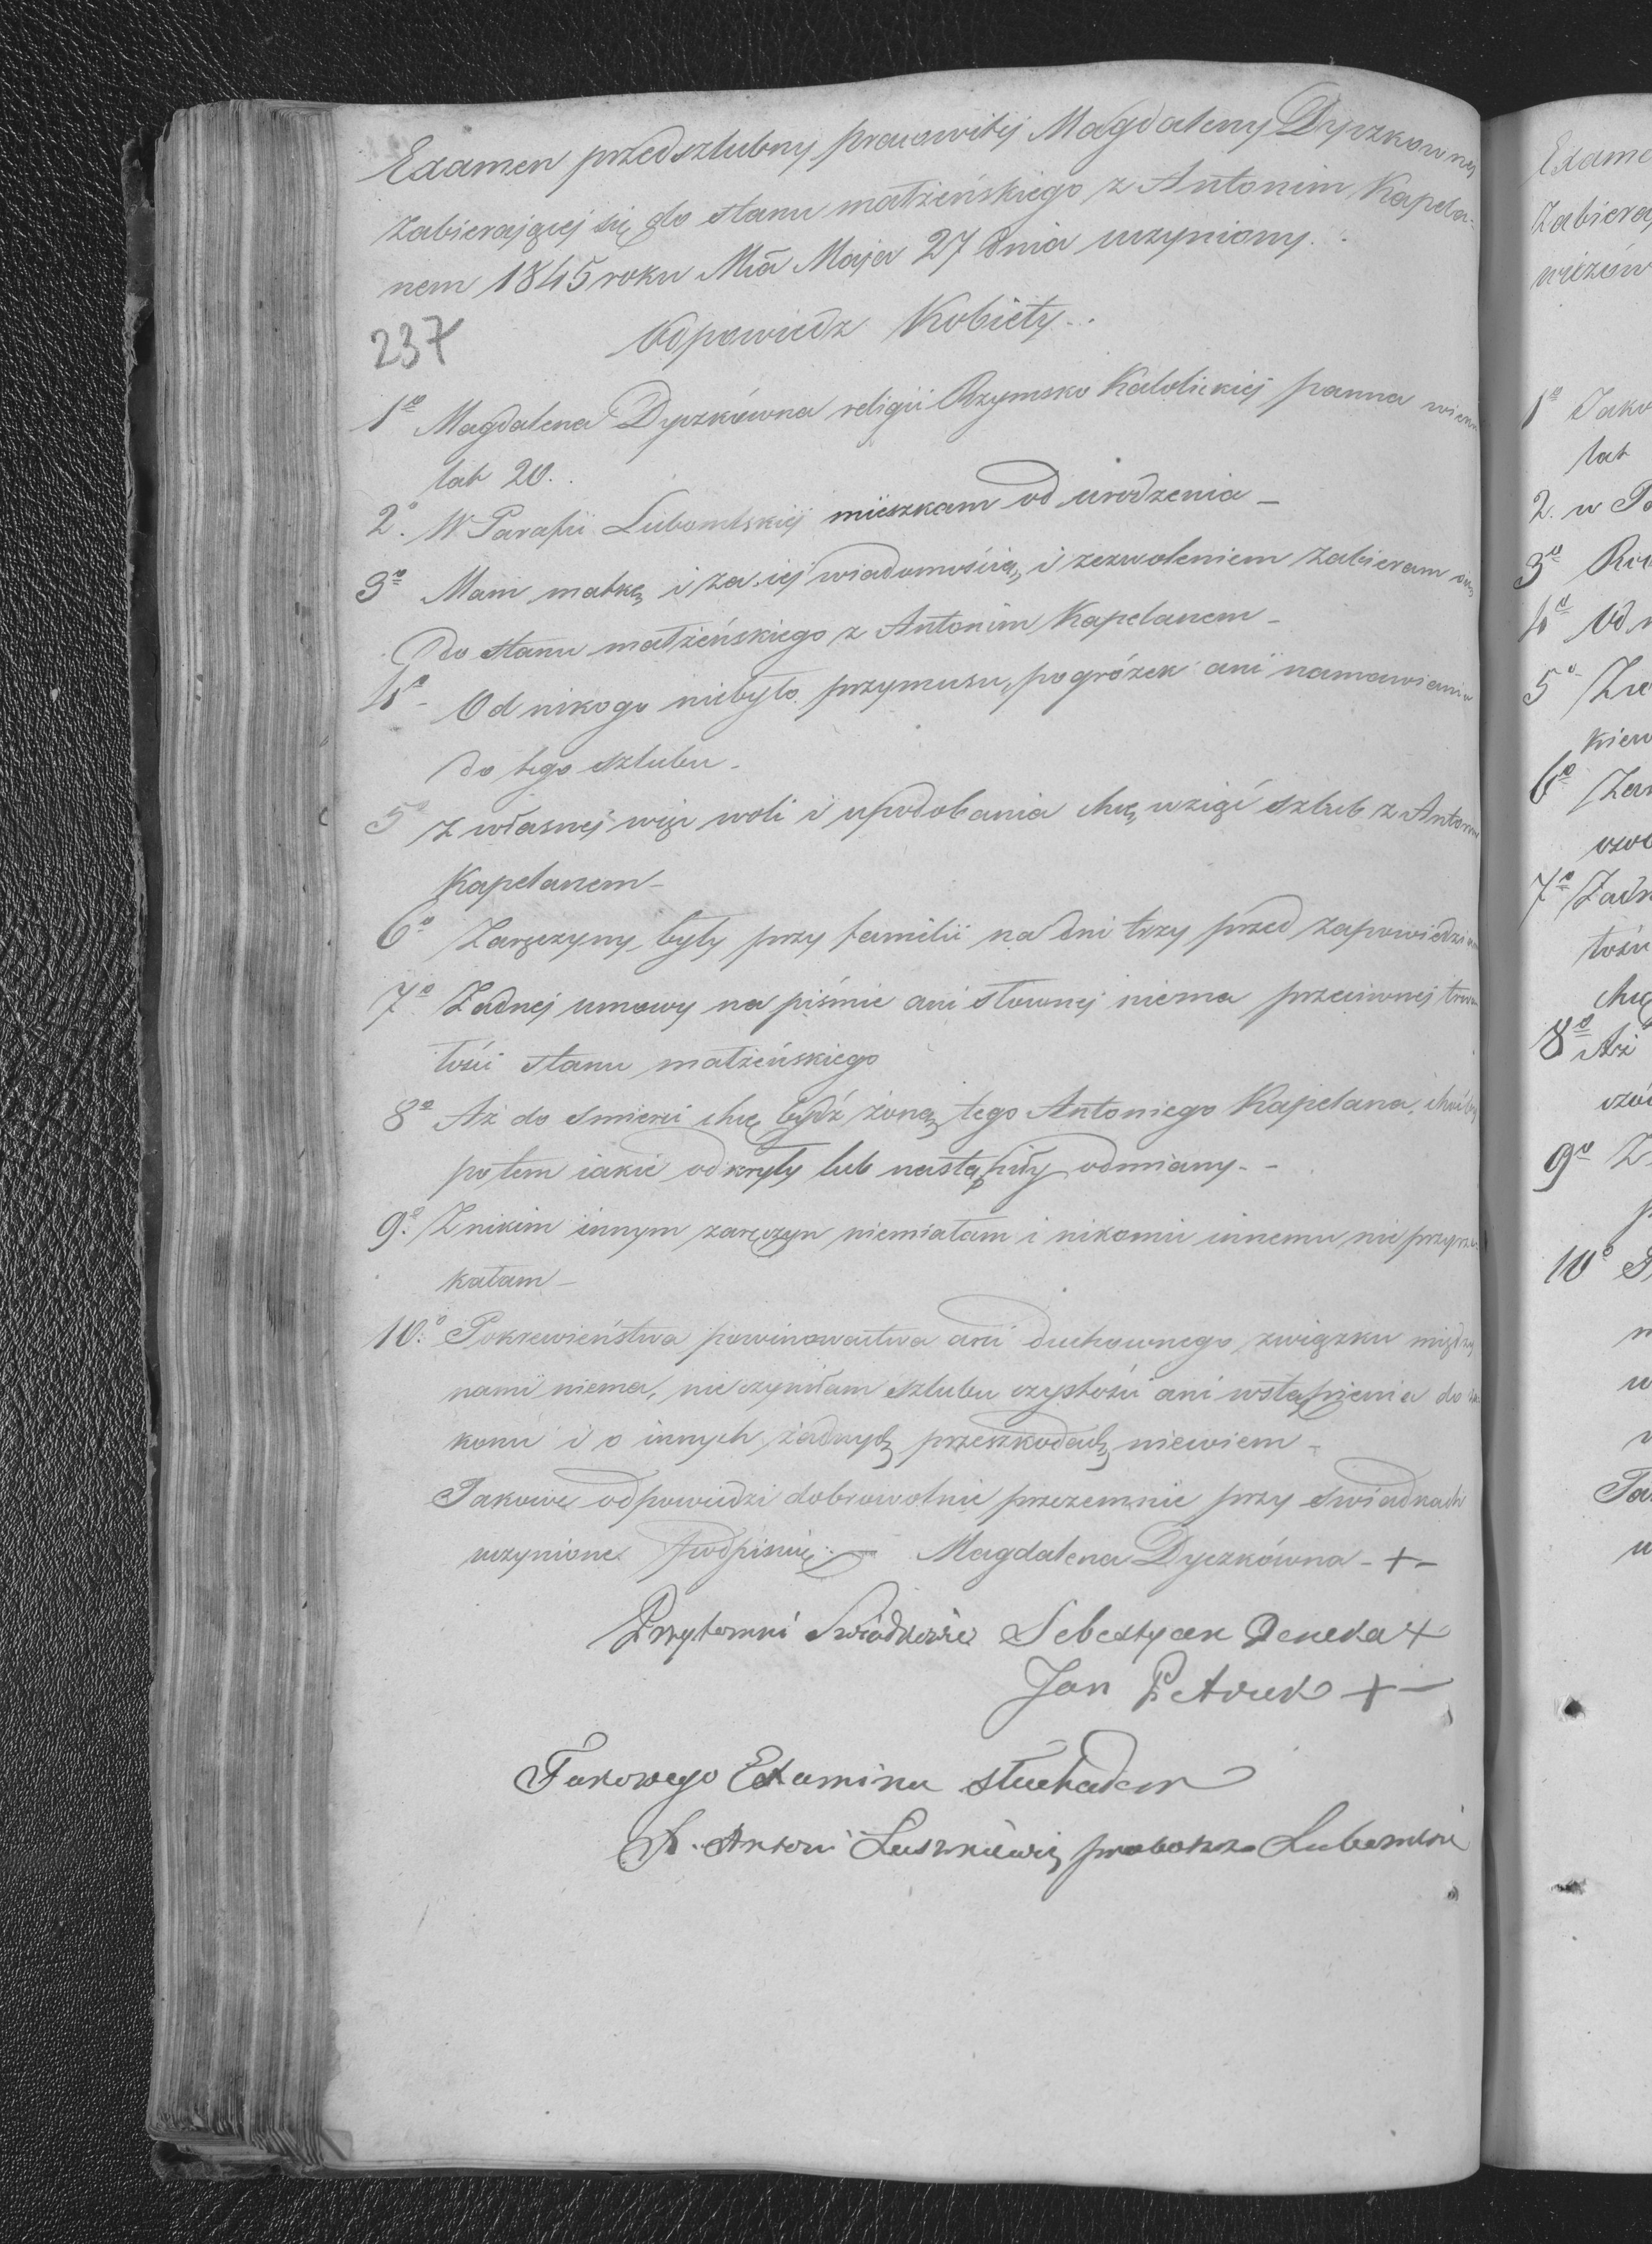 Examen przedszlubny pracowitej Magdaleny Dyczkowny
Zabierającej się do stanu małżeńskiego z Antonim Kapela-
nem 1845 roku Mca Maja 27 dnia uczyniony.
237
Odpowiedz Kobiety
1º Magdalena Dyczkówna religii Rzymsko Katolickiej panna
lat 20.
2º. W Parafii Lubomlskiej mieszkam od urodzenia -
3º Mam matkę i za jej wiadomością i zezwoleniem zabieram się
do stanu małżeńskiego z Antonim Kapelanem -
4º - Od nikogo niebyło przymusu, pogróżek ani namawiania
do tego szlubu -
5º z własnej więc woli i upodobania chcę wziąć szlub z Antonim
Kapelanem -
6º Zaręczyny były przy familii na dni trzy przed zapowiedziami
7º Żadnej umowy na piśmie ani słownej niema przeciwnej trwa
łości stanu małżeńskiego
8º Aż do śmierci chcę bydź żoną tego Antoniego Kapelana, choćby
potem jakie odkryły lub nastąpiły odmiany - -
9º. Z nikim innym zaręczyn niemiałam i nikomu innemu nie przyrze-
kałam -
10º. Pokrewieństwa powinowactwa ani duchownego związku między
nami niema, nie czyniłam szlubu czystości ani wstąpienia do za
konu i o innych żadnych przeszkodach niewiem -
Takowe odpowiedzi dobrowolnie przezemnie przy świadkach
uczynione podpisuię - Magdalena Dyczkówna - + -
Przytomni Swiadkowie Sebestyan Deneka +
Jan Pietruk + -
Takowego Examinu słuchałem
X. Antoni Luszkiewicz proboszcz Lubomlski
Exame
Zabieraj
1º Jako
lat
2. w Pa
3º
4º Od n
5º
kiew
6º Zar
7º Żadn
łości
chcę
8º Aż
9º Z
10º
Ta